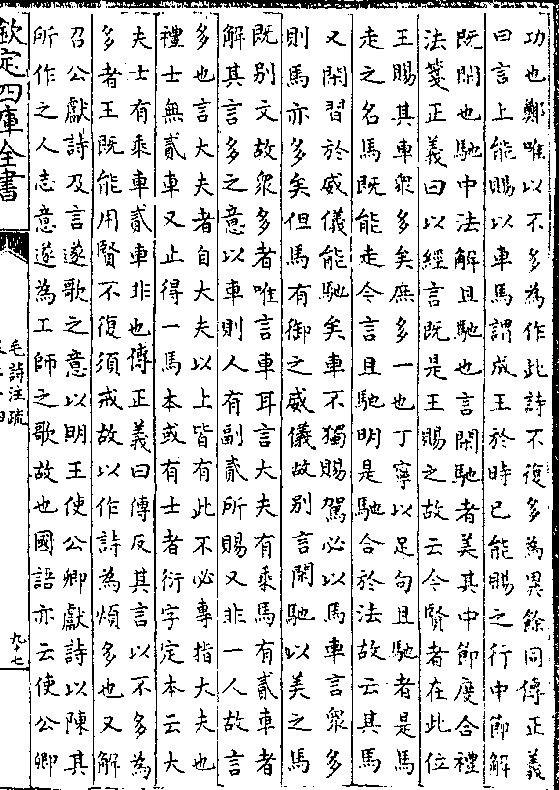 功也鄭唯以不多為作此詩不復多為異餘同傳正義
曰言上能賜以車馬謂成王於時已能賜之行中節解
既閑也馳中法解且馳也言閑馳者美其中節度合禮
法箋正義曰以經言既是王賜之故云今賢者在此位
王賜其車衆多矣庶多一也丁寧以足句且馳者是馬
走之名馬既能走今言且馳明是馳合於法故云其馬
又閑習於威儀能馳矣車不獨賜駕必以馬車言衆多
則馬亦多矣但馬有御之威儀故別言閑馳以美之馬
既別文故衆多者唯言車耳言大夫有乘馬有貳車者
解其言多之意以車則人有副貳所賜又非一人故言
多也言大夫者自大夫以上皆有此不必專指大夫也
禮士無貳車又止得一馬本或有士者衍字定本云大
夫士有乘車貳車非也傳正義曰傳反其言以不多為
多者王既能用賢不復須戒故以作詩為煩多也又解
召公獻詩及言遂歌之意以明王使公卿獻詩以陳其
所作之人志意遂為工師之歌故也國語亦云使公卿
欽定四庫全書
毛詩注疏
九十七